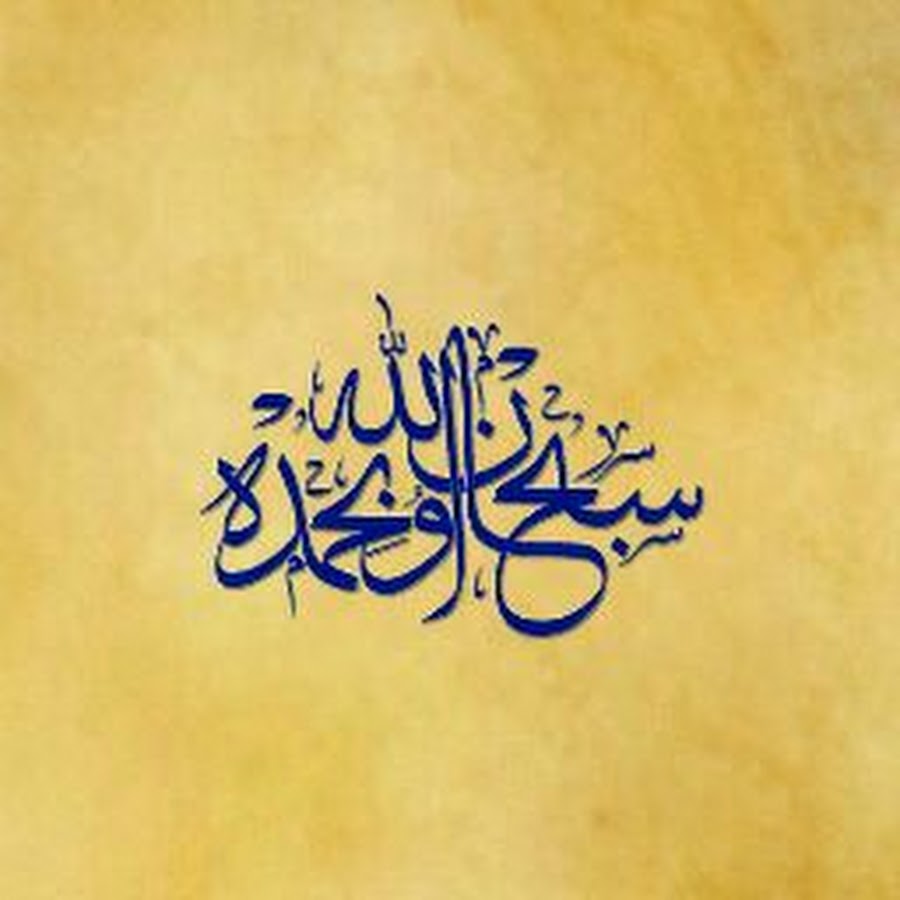 سبحان الله وبحمده